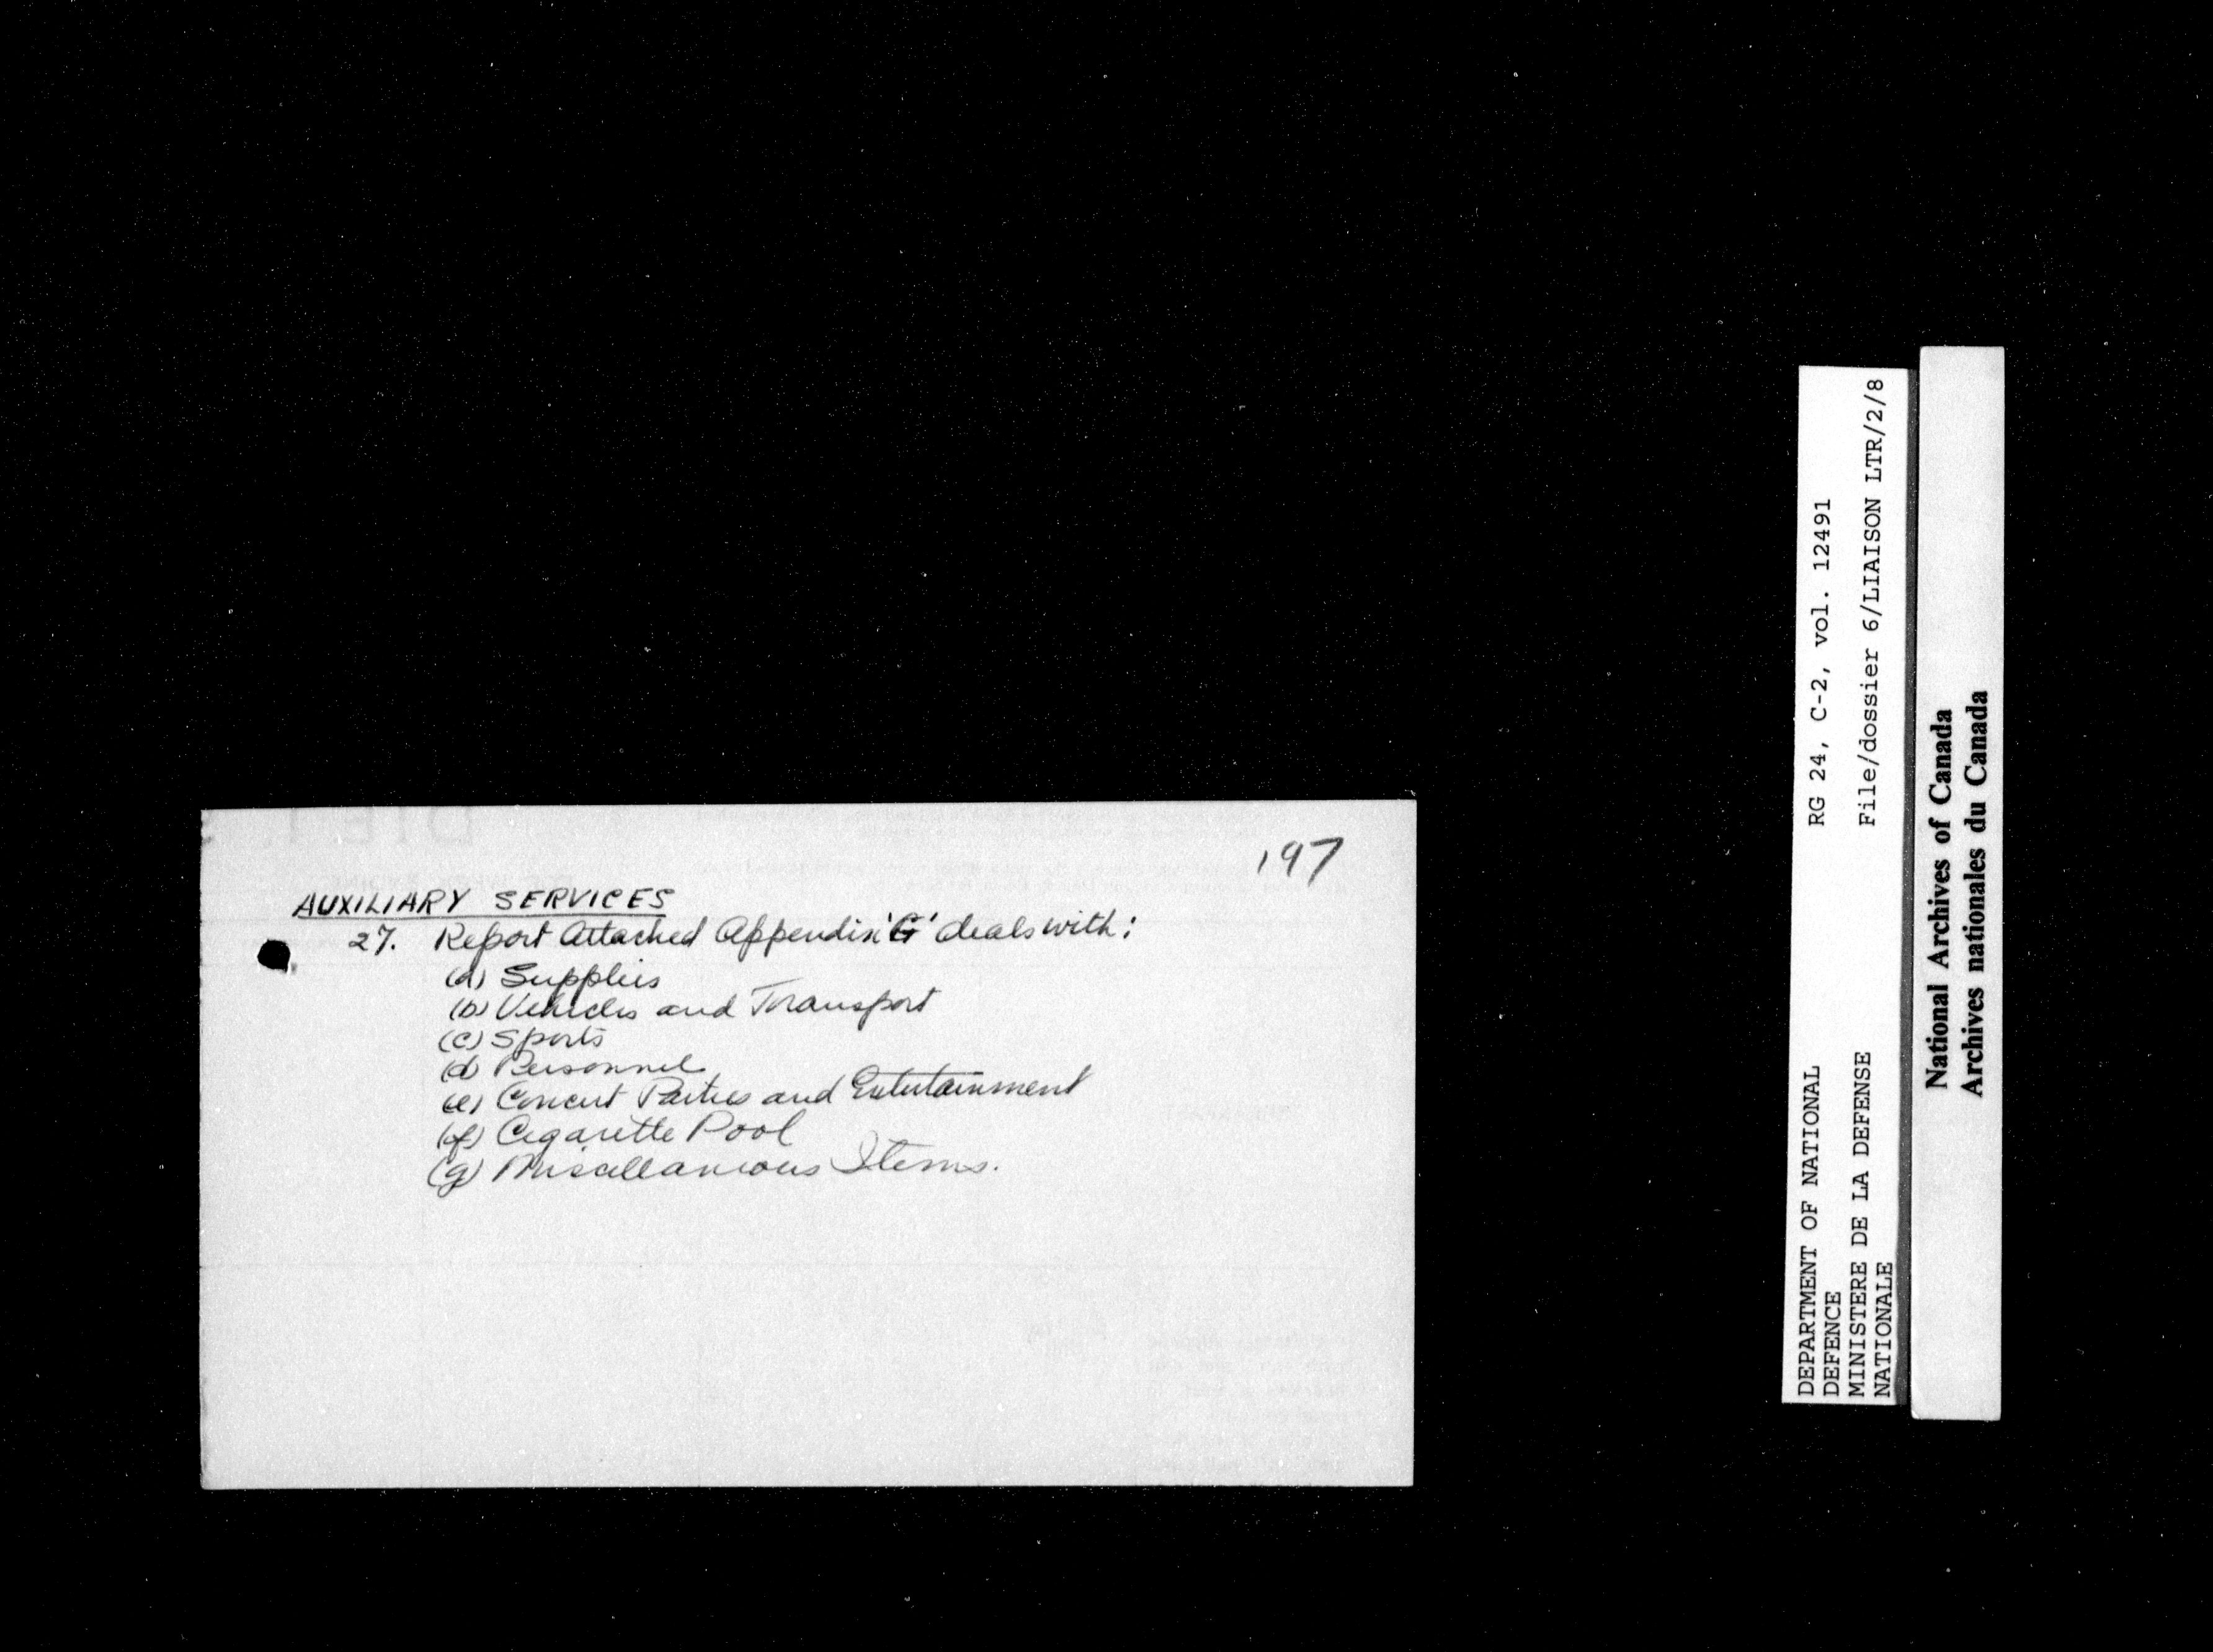 197
AUXILIARY SERVICES
27. Report Attached Appendix 'G' deals with:
(a) Supplies
(b) Vehicles and Transport
(c) Sports
(d) Personnel
(e) Concert Parties and Entertainment
(f) Cigarette Pool
(g) Miscellaneous Items.
DEPARTMENT OF NATIONAL DEFENCE
MINISTERE DE LA DEFENSE NATIONALE
RG 24, C-2, vol. 12491
File/dossier 6/LIAISON LTR/2/8
National Archives of Canada
Archives nationales du Canada